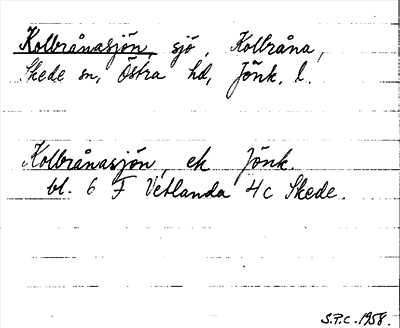 Kolbrånasjön, sjö, Kolbråna,
Skede sn, Östra hd, Jönk. l.
Kolbrånasjön, ek Jönk.
bl. 6 F Vetlanda 4c Skede.
S.P.C. 1958.